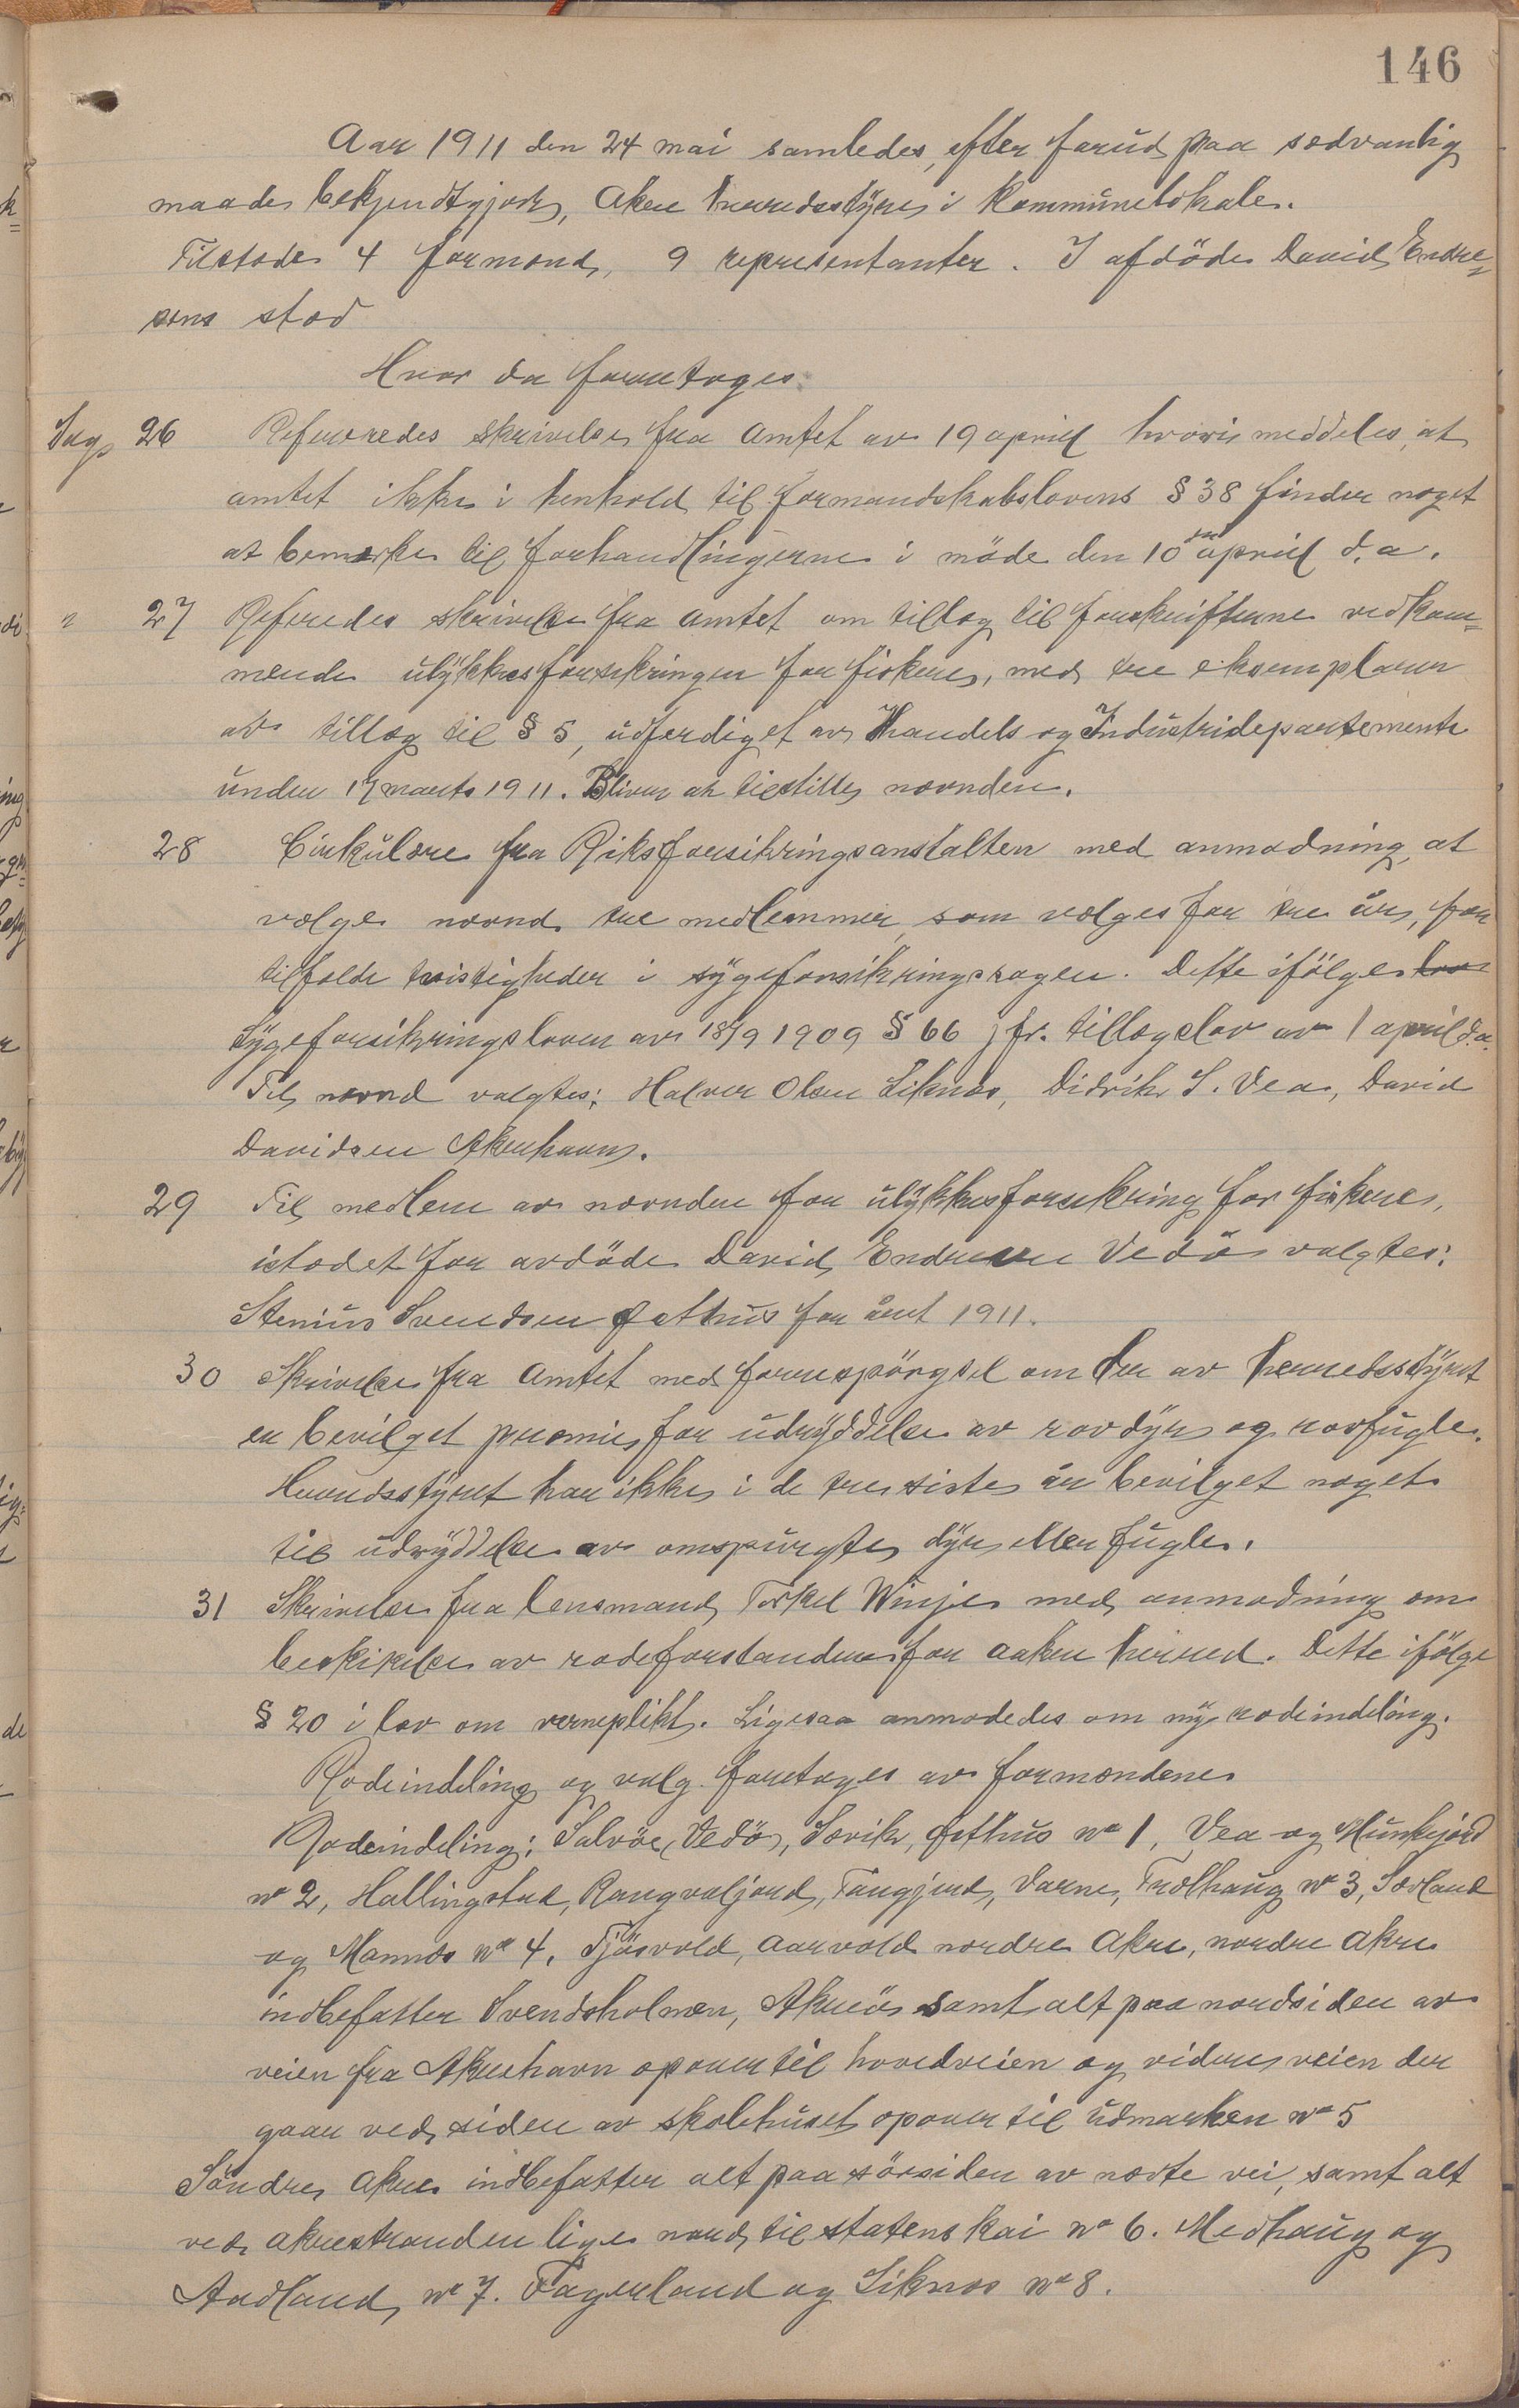 146
Aar 1911 den 24 mai samledes, efter forud paa sedvanlig
maade bekjendtgjort, Akre herredsstyre i Kommunelokale.
Tilstede 4 formænd, 9 representanter. I afdöde David Endre=
sens sted
Hvor da foretoges:
Sag 26 Refereredes skrivelse fra amtet av 19 april hvori meddeles, at
amtet ikke i henhold til formandskabslovens § 38 finder noget
at bemerke til forhandlingerne i möde den 10 april d.a.
" 27 Referedes skrivelse fra amtet om tillæg til forskrifterne vedkom=
mende ulykkesforsikringen for fiskere, med tre eksemplarer
av tillæg til § 5, udferdiget av Handels og Industridepartemente
under 17 marts 1911. Bliver at tilstille nævnden.
28 Cirkulære fra Riksforsikringsanstalten med anmodning, at
vælge nævnd tre medlemmer, som vælges for tre år, for
tilfælde tvistigheder i sygeforsikringssagen. Dette ifölge lov
Sygeforsikringsloven av 18/9 1909 § 66 jfr. tillægslov av 1 april d.a.
Til nævnd valgtes: Halvor Olsen Liknes, Didrik S. Vea, David
Davidsen Akrehavn.
29 Til medlem av nævnden for ulykkesforsikring for fiskere,
istedet for avdöde David Endresen Vedö valgtes:
Stenius Svendsen Østhus for året 1911.
30 Skrivelse fra amtet med forespörgsel om der av herredsstyret
er bevilget premie for udryddelse av rovdyr og rovfugle.
Herredsstyret har ikke i de tre siste år bevilget noget
til udryddelse av omspurgte dyr eller fugle.
31 Skrivelse fra lensmand Torkel Winje med anmodning om
beskikelse av rodeforstandere for aakre herred. Dette ifölge
§ 20 i lov om verneplikt. Ligesaa anmodedes om ny rodeindeling.
Rodeindeling og valg foretoges av formændene
Rodeindeling: Salvöe, Vedö, Sævik, Østhus No 1, Vea og Munkejord
No 2, Hallingstad, Rangvaljord, Tangjerd, Varne, Trælhaug No 3, Sæland
og Mannes No 4. Tjösvold, Aarvold nordre Akre, nordre Akre
indbefatter Svendsholmen, Akreö samt alt paa nordsiden av
veien fra Akrehavn opover til hovedveien og videre veien der
gaar ved siden av skolehuset opover til udmarken No 5
Söndre Akre indbefatter alt paa sörsiden av nævte vei, samt alt
ved akrestranden lige nord til statens kai No 6. Medhaug og
Aadland No 7. Fagerland og Liknes No 8.